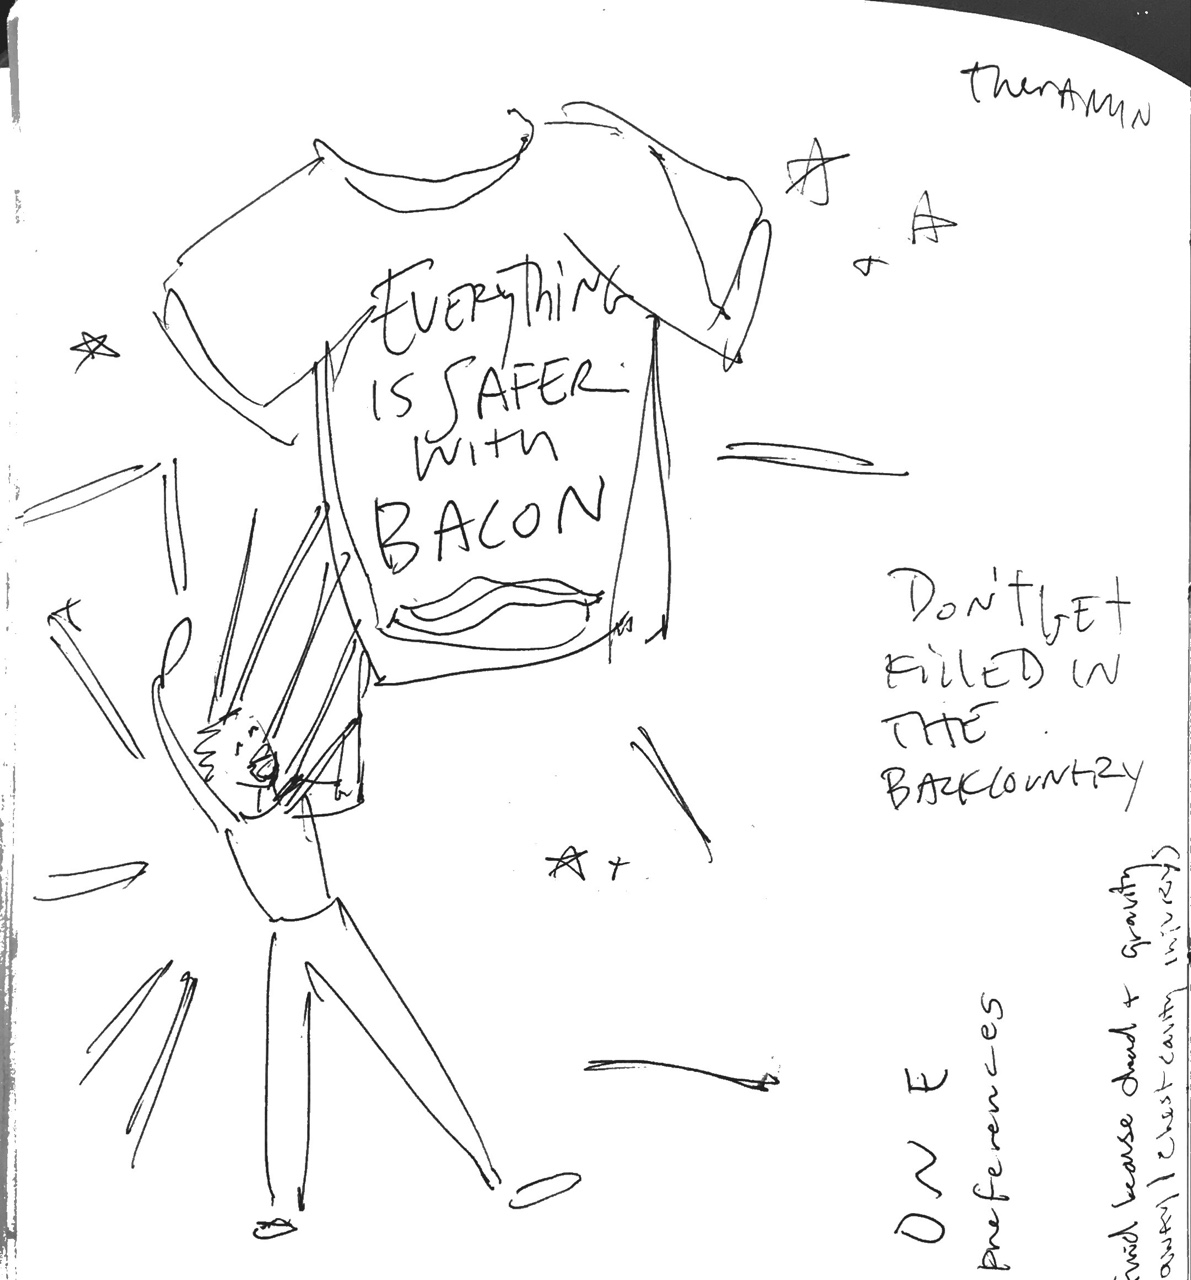 therAMIN
EVERYthiNG
IS SAFER
with
BACON
DON'T GET
KillED IN
THE
BACKCOUNTRY
ONE
preferences
+ gravity
away / chest cavity injurys